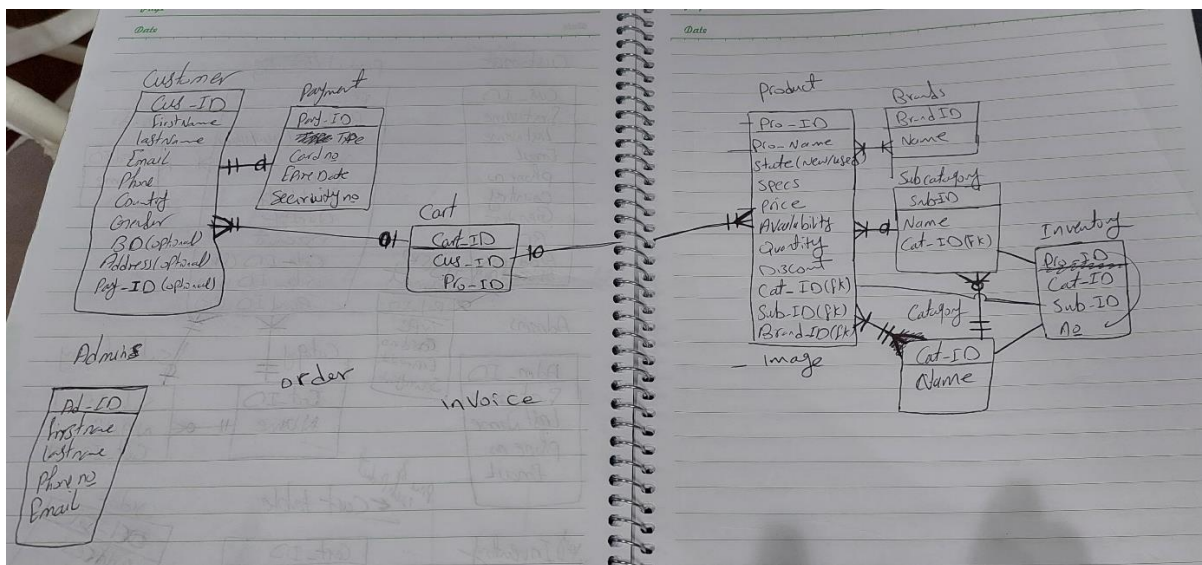 Date
Customer
Cus_ID
FirstName
lastName
Email
Phone
Country
Gender
BD (optional)
Address (optional)
Pay-ID (optional)
Payment
Pay-ID
Type
Card no
Security no
Cart
Cart-ID
Cus-ID
Pro-ID
Admins
Ad-ID
Firstname
lastname
Phone no
Email
order
invoice
Date
Product
Pro-ID
Pro-Name
State (new/used)
Specs
Price
Availability
Quantity
Discont
Cat-ID (fk)
Sub-ID (fk)
Brand ID (fk)
- Image
Brands
Brand ID
Name
Subcatagory
SubID
Name
Cat-ID (fk)
Catagory
Cat-ID
Name
Inventory
Pro-ID
Cat-ID
Sub-ID
no